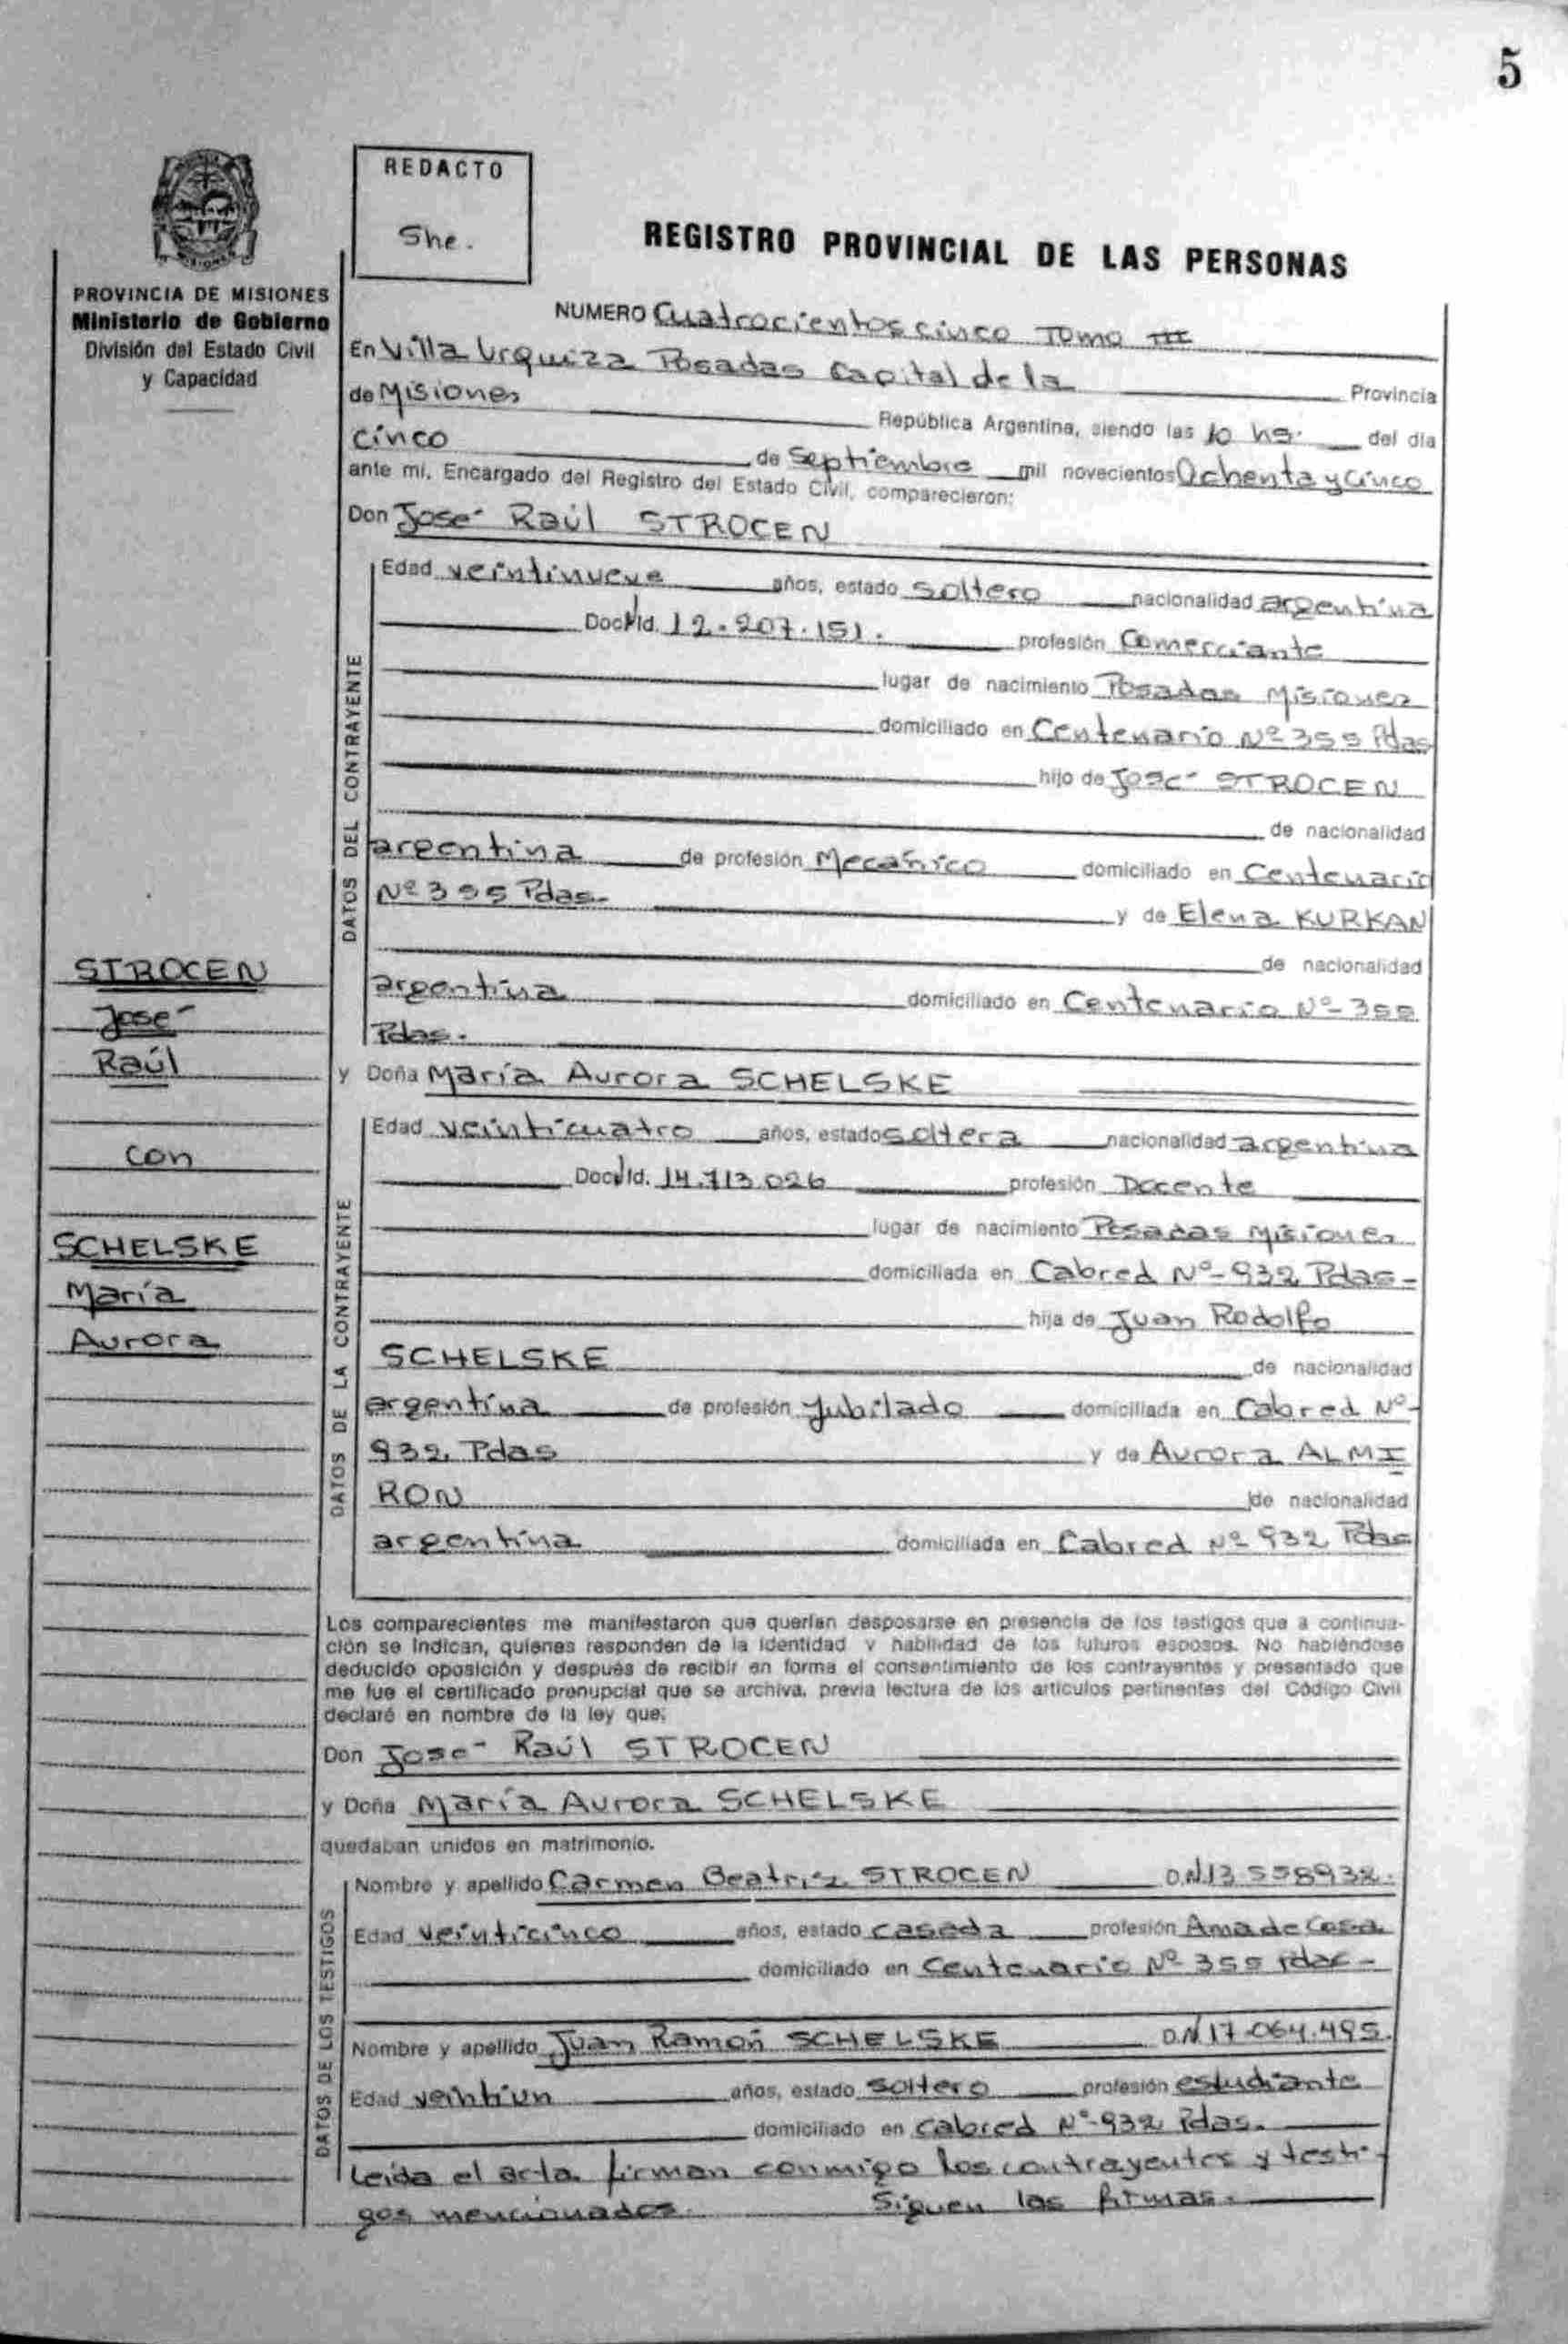 5
REDACTO
She.
REGISTRO PROVINCIAL DE LAS PERSONAS
PROVINCIA DE MISIONES
Ministerio de Gobierno
División del Estado Civil
y Capacidad
NUMERO Cuatrocientos cinco Tomo III
En Villa Urquiza Posadas Capital de la Provincia
de Misiones República Argentina, siendo las 10 hs. del día
cinco de Septiembre mil novecientos Ochenta y Cinco
ante mi, Encargado del Registro del Estado Civil, comparecieron:
Don José Raúl STROCEN
DATOS DEL CONTRAYENTE
Edad veintinueve años, estado soltero nacionalidad argentina
Doc. Id. 12.207.151. profesión Comerciante
lugar de nacimiento Posadas Misiones
domiciliado en Centenario Nº 355 Pdas
hijo de José STROCEN
de nacionalidad
argentina de profesión Mecánico domiciliado en Centenario
Nº 355 Pdas. y de Elena KURKAN
de nacionalidad
argentina domiciliado en Centenario Nº 355
Pdas.
y Doña María Aurora SCHELSKE
DATOS DE LA CONTRAYENTE
Edad veinticuatro años, estado soltera nacionalidad argentina
Doc. Id. 14.713.026 profesión Docente
lugar de nacimiento Posadas Misiones
domiciliada en Cabred Nº 932 Pdas-
hija de Juan Rodolfo
SCHELSKE de nacionalidad
argentina de profesión Jubilado domiciliada en Cabred Nº
932 Pdas y de Aurora ALMI
RON de nacionalidad
argentina domiciliada en Cabred Nº 932 Pdas
STROCEN
José
Raúl
con
SCHELSKE
María
Aurora
Los comparecientes me manifestaron que querían desposarse en presencia de los testigos que a continua-
ción se indican, quienes responden de la identidad y habilidad de los futuros esposos. No habiéndose
deducido oposición y después de recibir en forma el consentimiento de los contrayentes y presentado que
me fue el certificado prenupcial que se archiva, previa lectura de los artículos pertinentes del Código Civil
declaré en nombre de la ley que:
Don José Raúl STROCEN
y Doña María Aurora SCHELSKE
quedaban unidos en matrimonio.
DATOS DE LOS TESTIGOS
Nombre y apellido Carmen Beatriz STROCEN D.N.I 13.558932.
Edad veinticinco años, estado casada profesión Ama de Casa
domiciliado en Centenario Nº 355 Pdas-
Nombre y apellido Juan Ramón SCHELSKE D.N.I 17.064.495.
Edad veintiun años, estado soltero profesión estudiante
domiciliado en Cabred Nº 932 Pdas.
Leída el acta. firman conmigo los contrayentes y testi-
gos mencionados. Siguen las firmas.